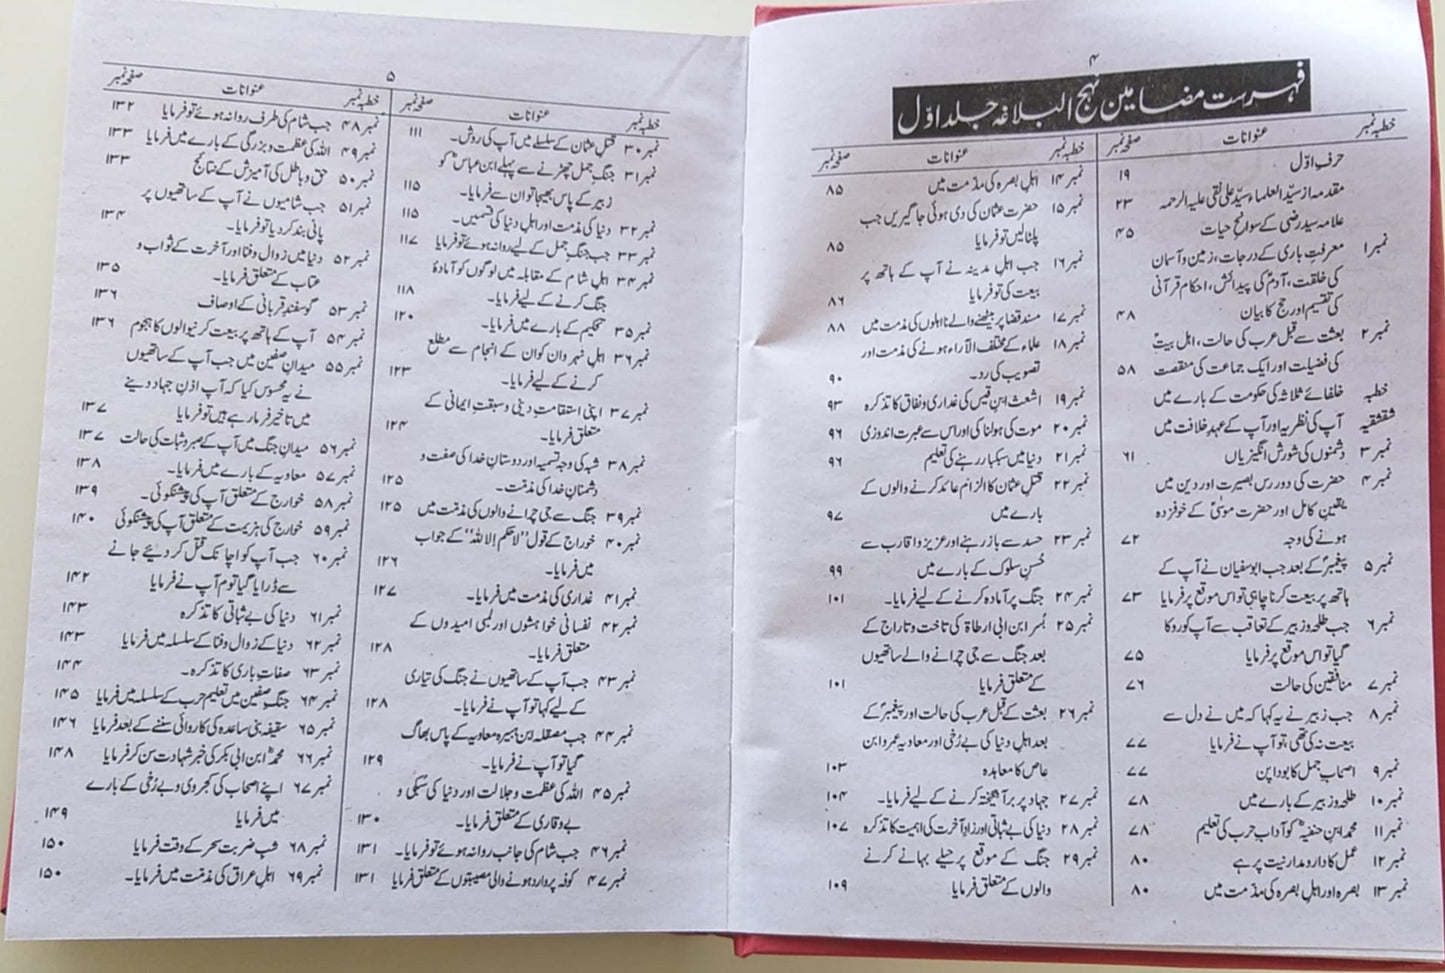 ۴
فہرست مضامین نہج البلاغہ جلد اوّل
خطبہ نمبر عنوانات صفحہ نمبر
حرفِ اوّل ۱۹
مقدمہ از سیّد العلماء سیّد علی نقی علیہ الرحمہ ۲۳
علامہ سیّد رضی کے سوانح حیات ۴۵
نمبر ۱ معرفتِ باری کے درجات، زمین و آسمان
کی خلقت، آدمؑ کی پیدائش، احکام قرآنی
کی تقسیم اور حج کا بیان ۴۸
نمبر ۲ بعثت سے قبل عرب کی حالت، اہل بیتؑ
کی فضیلت اور ایک جماعت کی منقصت ۵۸
خطبہ خلفائے ثلاثہ کی حکومت کے بارے میں
شقشقیہ آپ کی نظریہ اور آپ کے عہدِ خلافت میں
نمبر ۳ دشمنوں کی شورش انگیزیاں ۶۱
نمبر ۴ حضرت کی دور رس بصیرت اور دین میں
یقین کامل اور حضرت موسیٰؑ کے خوفزدہ
ہونے کی وجہ ۷۲
نمبر ۵ پیغمبرؐ کے بعد جب ابوسفیان نے آپ کے
ہاتھ پر بیعت کرنا چاہی تو اس موقع پر فرمایا ۷۳
نمبر ۶ جب طلحہ و زبیر کے تعاقب سے آپ کو روکا
گیا تو اس موقع پر فرمایا ۷۵
نمبر ۷ منافقین کی حالت ۷۶
نمبر ۸ جب زبیر نے یہ کہا کہ میں نے دل سے
بیعت نہ کی تھی، تو آپ نے فرمایا ۷۷
نمبر ۹ اصحابِ جمل کا بودا پن ۷۷
نمبر ۱۰ طلحہ و زبیر کے بارے میں ۷۸
نمبر ۱۱ محمد ابن حنفیہؓ کو آدابِ حرب کی تعلیم ۷۸
نمبر ۱۲ عمل کا دارومدار نیت پر ہے ۸۰
نمبر ۱۳ بصرہ اور اہلِ بصرہ کی مذمت میں ۸۰
خطبہ نمبر عنوانات صفحہ نمبر
نمبر ۱۴ اہلِ بصرہ کی مذمت میں ۸۵
نمبر ۱۵ حضرت عثمان کی دی ہوئی جاگیریں جب
پلٹا لیں تو فرمایا ۸۵
نمبر ۱۶ جب اہلِ مدینہ نے آپ کے ہاتھ پر
بیعت کی تو فرمایا ۸۶
نمبر ۱۷ مسند قضا پر بیٹھنے والے نااہلوں کی مذمت میں ۸۸
نمبر ۱۸ علماء کے مختلف الآراء ہونے کی مذمت اور
تصویب کی رد۔ ۹۰
نمبر ۱۹ اشعث ابن قیس کی غداری و نفاق کا تذکرہ ۹۳
نمبر ۲۰ موت کی ہولناکی اور اس سے عبرت اندوزی ۹۶
نمبر ۲۱ دنیا میں سبکبار رہنے کی تعلیم ۹۶
نمبر ۲۲ قتلِ عثمان کا الزام عائد کرنے والوں کے
بارے میں ۹۷
نمبر ۲۳ حسد سے باز رہنے اور عزیز و اقارب سے
حُسنِ سلوک کے بارے میں ۹۹
نمبر ۲۴ جنگ پر آمادہ کرنے کے لیے فرمایا۔ ۱۰۱
نمبر ۲۵ بُسر ابن ابی ارطاۃ کی تاخت و تاراج کے
بعد جنگ سے جی چرانے والے ساتھیوں
کے متعلق فرمایا ۱۰۱
نمبر ۲۶ بعثت کے قبل عرب کی حالت اور پیغمبرؐ کے
بعد اہلِ دنیا کی بے رُخی اور معاویہ عمرو ابن
عاص کا معاہدہ ۱۰۳
نمبر ۲۷ جہاد پر برانگیختہ کرنے کے لیے فرمایا۔ ۱۰۴
نمبر ۲۸ دنیا کی بے ثباتی اور زادِ آخرت کی اہمیت کا تذکرہ ۱۰۷
نمبر ۲۹ جنگ کے موقع پر حیلے بہانے کرنے
والوں کے متعلق فرمایا ۱۰۹
۵
خطبہ نمبر عنوانات صفحہ نمبر
نمبر ۳۰ قتلِ عثمان کے سلسلے میں آپ کی روش۔ ۱۱۱
نمبر ۳۱ جنگِ جمل چھڑنے سے پہلے ابن عباسؓ کو
زبیر کے پاس بھیجا تو ان سے فرمایا۔ ۱۱۵
نمبر ۳۲ دنیا کی مذمت اور اہلِ دنیا کی قسمیں۔ ۱۱۵
نمبر ۳۳ جب جنگِ جمل کے لیے روانہ ہوئے تو فرمایا ۱۱۷
نمبر ۳۴ اہلِ شام کے مقابلہ میں لوگوں کو آمادۂ
جنگ کرنے کے لیے فرمایا۔ ۱۱۸
نمبر ۳۵ تحکیم کے بارے میں فرمایا۔ ۱۲۰
نمبر ۳۶ اہلِ نہروان کو ان کے انجام سے مطلع
کرنے کے لیے فرمایا۔ ۱۲۳
نمبر ۳۷ اپنی استقامتِ دینی و سبقتِ ایمانی کے
متعلق فرمایا۔ ۱۲۴
نمبر ۳۸ شبہ کی وجہ تسمیہ اور دوستانِ خدا کی صفت و
دشمنانِ خدا کی مذمّت۔ ۱۲۵
نمبر ۳۹ جنگ سے جی چرانے والوں کی مذمّت میں ۱۲۵
نمبر ۴۰ خوارج کے قول ’’لا حکم الا للہ‘‘ کے جواب
میں فرمایا۔ ۱۲۶
نمبر ۴۱ غداری کی مذمت میں فرمایا۔ ۱۲۷
نمبر ۴۲ نفسانی خواہشوں اور لمبی امیدوں کے
متعلق فرمایا۔ ۱۲۸
نمبر ۴۳ جب آپ کے ساتھیوں نے جنگ کی تیاری
کے لیے کہا تو آپ نے فرمایا۔ ۱۲۸
نمبر ۴۴ جب مصقلہ ابن ہبیرہ معاویہ کے پاس بھاگ
گیا تو آپ نے فرمایا۔ ۱۲۹
نمبر ۴۵ اللہ کی عظمت و جلالت اور دنیا کی سُبکی و
بے وقاری کے متعلق فرمایا۔ ۱۳۰
نمبر ۴۶ جب شام کی جانب روانہ ہوئے تو فرمایا۔ ۱۳۱
نمبر ۴۷ کوفہ پر وارد ہونے والی مصیبتوں کے متعلق فرمایا ۱۳۱
خطبہ نمبر عنوانات صفحہ نمبر
نمبر ۴۸ جب شام کی طرف روانہ ہوئے تو فرمایا ۱۳۲
نمبر ۴۹ اللہ کی عظمت و بزرگی کے بارے میں فرمایا ۱۳۳
نمبر ۵۰ حق و باطل کی آمیزش کے نتائج ۱۳۳
نمبر ۵۱ جب شامیوں نے آپ کے ساتھیوں پر
پانی بند کر دیا تو فرمایا۔ ۱۳۴
نمبر ۵۲ دنیا میں زوال و فنا اور آخرت کے ثواب و
عتاب کے متعلق فرمایا۔ ۱۳۵
نمبر ۵۳ گوسفند قربانی کے اوصاف ۱۳۶
نمبر ۵۴ آپ کے ہاتھ پر بیعت کرنیوالوں کا ہجوم ۱۳۶
نمبر ۵۵ میدانِ صفین میں جب آپ کے ساتھیوں
نے یہ محسوس کیا کہ آپ اذنِ جہاد دینے
میں تاخیر فرما رہے ہیں تو فرمایا ۱۳۷
نمبر ۵۶ میدانِ جنگ میں آپ کے صبر و ثبات کی حالت ۱۳۷
نمبر ۵۷ معاویہ کے بارے میں فرمایا۔ ۱۳۸
نمبر ۵۸ خوارج کے متعلق آپ کی پیشنگوئی۔ ۱۳۹
نمبر ۵۹ خوارج کی ہزیمت کے متعلق آپ کی پیشنگوئی ۱۴۰
نمبر ۶۰ جب آپ کو اچانک قتل کر دیئے جانے
سے ڈرایا گیا تو آپ نے فرمایا ۱۴۲
نمبر ۶۱ دنیا کی بے ثباتی کا تذکرہ ۱۴۳
نمبر ۶۲ دنیا کے زوال و فنا کے سلسلہ میں فرمایا ۱۴۳
نمبر ۶۳ صفاتِ باری کا تذکرہ۔ ۱۴۴
نمبر ۶۴ جنگِ صفین میں تعلیم حرب کے سلسلہ میں فرمایا ۱۴۵
نمبر ۶۵ سقیفہ بنی ساعدہ کی کاروائی سننے کے بعد فرمایا ۱۴۶
نمبر ۶۶ محمدؓ ابن ابی بکر کی خبر شہادت سن کر فرمایا ۱۴۸
نمبر ۶۷ اپنے اصحاب کی کجروی و بے رُخی کے بارے
میں فرمایا ۱۴۹
نمبر ۶۸ شبِ ضربت سحر کے وقت فرمایا ۱۵۰
نمبر ۶۹ اہلِ عراق کی مذمّت میں فرمایا۔ ۱۵۰